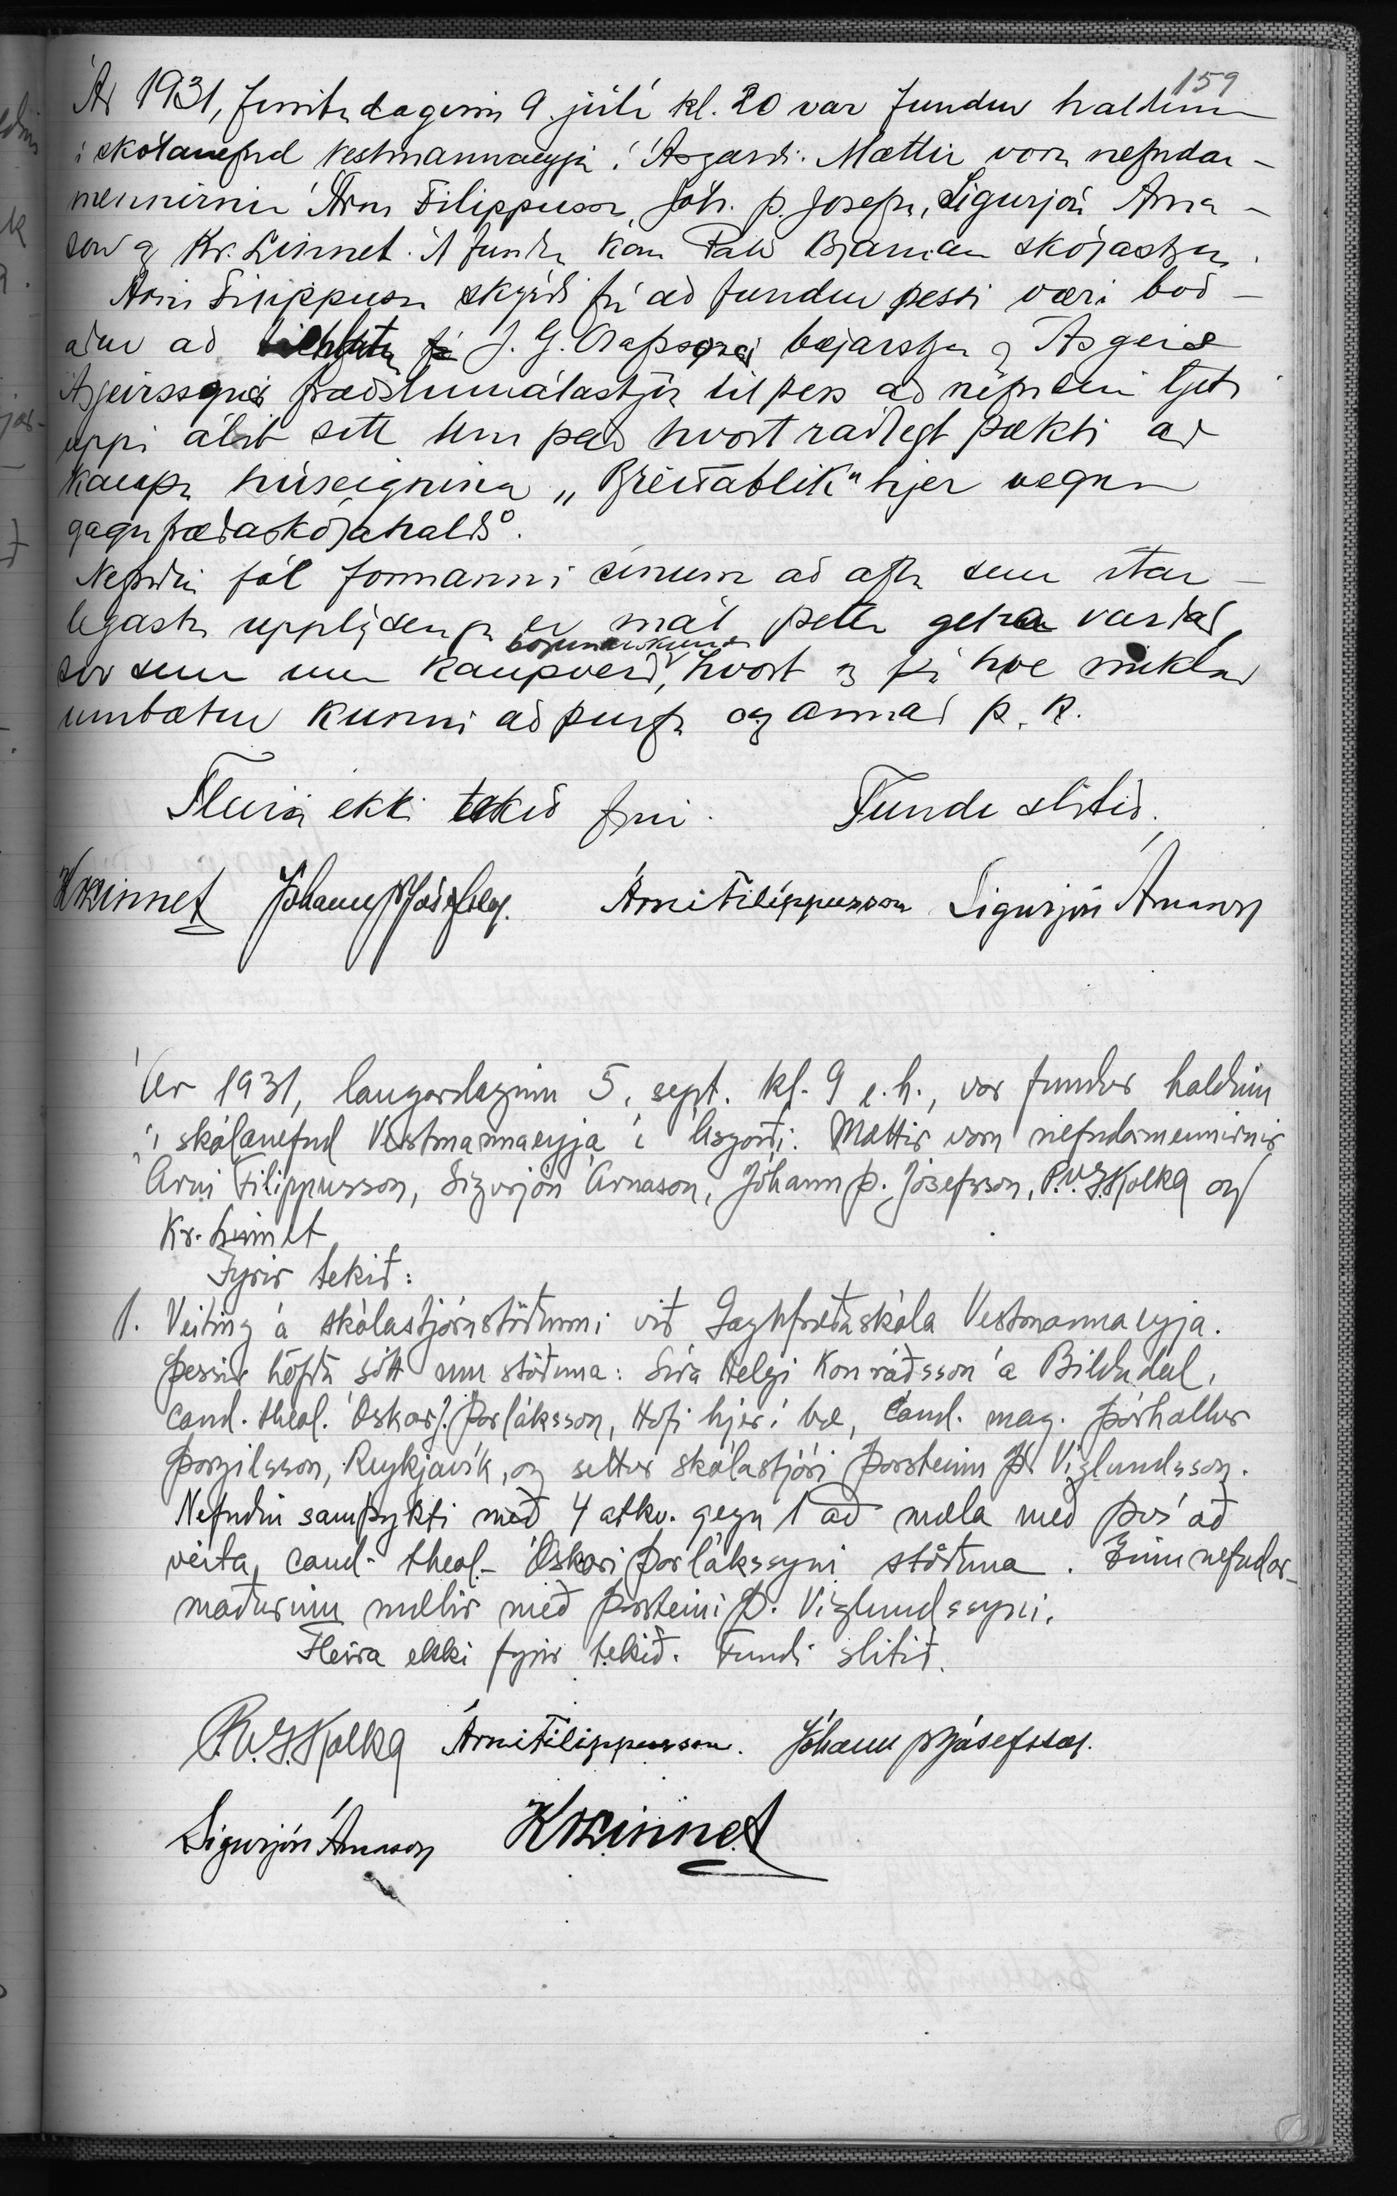 159
Ár 1931, fimtudaginn 9. júlí kl. 20 var fundur haldinn
í skólanefnd Vestmannaeyja í Ásgarði. Mættir voru nefndar-
mennirnir Árni Filippusson, Jóh. Þ. Josefss, Sigurjón Árna-
son og Kr. Linnet. Á fundin kom Páll Bjarnason skólastjóri.
Árni Filippusson skýrði frá að fundur þessi væri boð-
aður að frá J. G. Ólafssyni bæjarstjóra og Ásgeir
Ásgeirssyni fræðslumálastjóra til þess að nefndin ljeti
uppi álit sitt um það hvort ráðlegt þækti að
kaupa húseignina „Breiðablik" hjer vegna
gagnfræðaskólahalds.
Nefndin fól formanni sínum að afla sem ítar-
legastra upplýsinga er mál þetta geta varðað
svo sem um kaupverð, borgunarskilmála hvort og þá hve miklar
umbætur kunni að þurfa og annað þ. h.
Fleira ekki tekið fyrir. Fundi slitið.
Kr Linnet Jóhann Þ Jósefsson. Árni Filippusson Sigurjón Árnason
Ár 1931, laugardaginn 5. sept. kl. 9 e.h., var fundur haldinn
í skólanefnd Vestmannaeyja í Ásgarði. Mættir voru nefndarmennirnir
Árni Filippusson, Sigurjón Árnason, Jóhann Þ. Jósefsson, P.V.G.Kolka og
Kr. Linnet
Fyrir tekið:
1. Veiting á skólastjórastöðunni við Gagnfræðaskóla Vestmannaeyja.
Þessir höfðu sótt um stöðuna: Síra Helgi Konráðsson á Bíldudal,
cand. theol. Óskar J. Þorláksson, Hofi hjer í bæ, cand. mag. Þórhallur
Þorgilsson, Reykjavík, og settur skólastjóri Þorsteinn Þ. Víglundsson.
Nefndin samþykti með 4 atkv. gegn 1 að mæla með því að
veita cand. theol. Óskari Þorlákssyni stöðuna. Einn nefndar-
maðurinn mælir með Þorsteini Þ. Víglundssyni.
Fleira ekki fyrir tekið. Fundi slitið.
P.V.G.Kolka Árni Filippusson. Jóhann Þ Jósefsson.
Sigurjón Árnason Kr Linnet